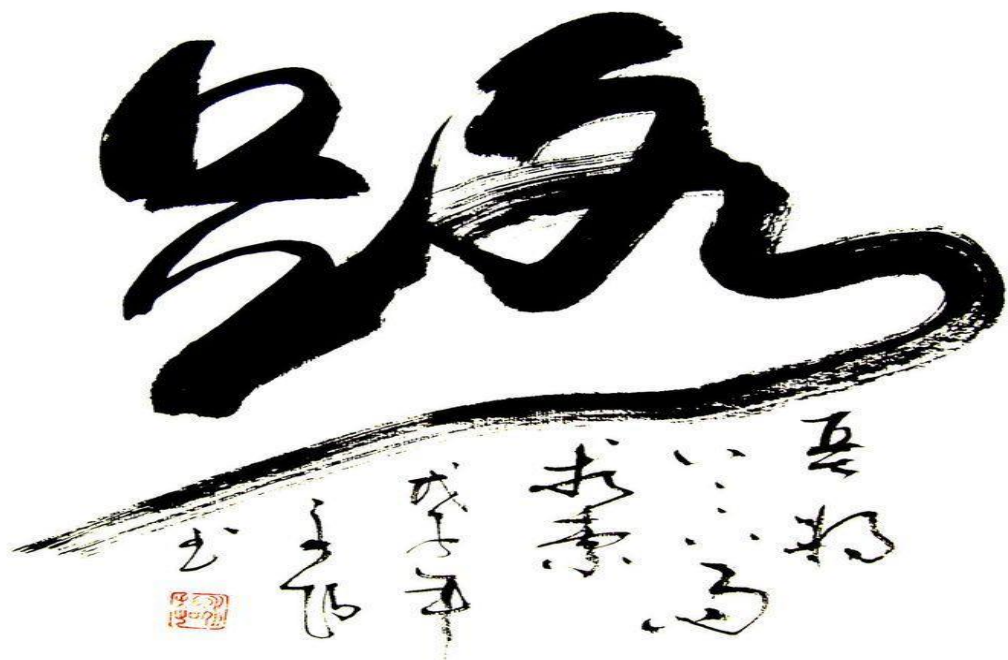 路
吾将
上下而
求索
戊子年
书